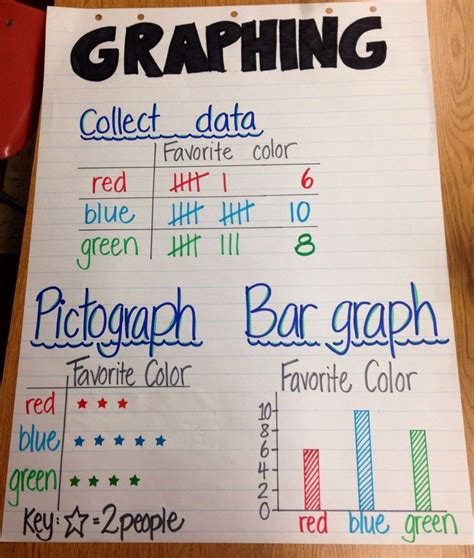 GRAPHING
Collect data
Favorite color
red 6
blue 10
green 8
Pictograph
Favorite Color
red
blue
green
Key: ☆ = 2 people
Bar graph
Favorite Color
10
8
6
4
2
0
red blue green